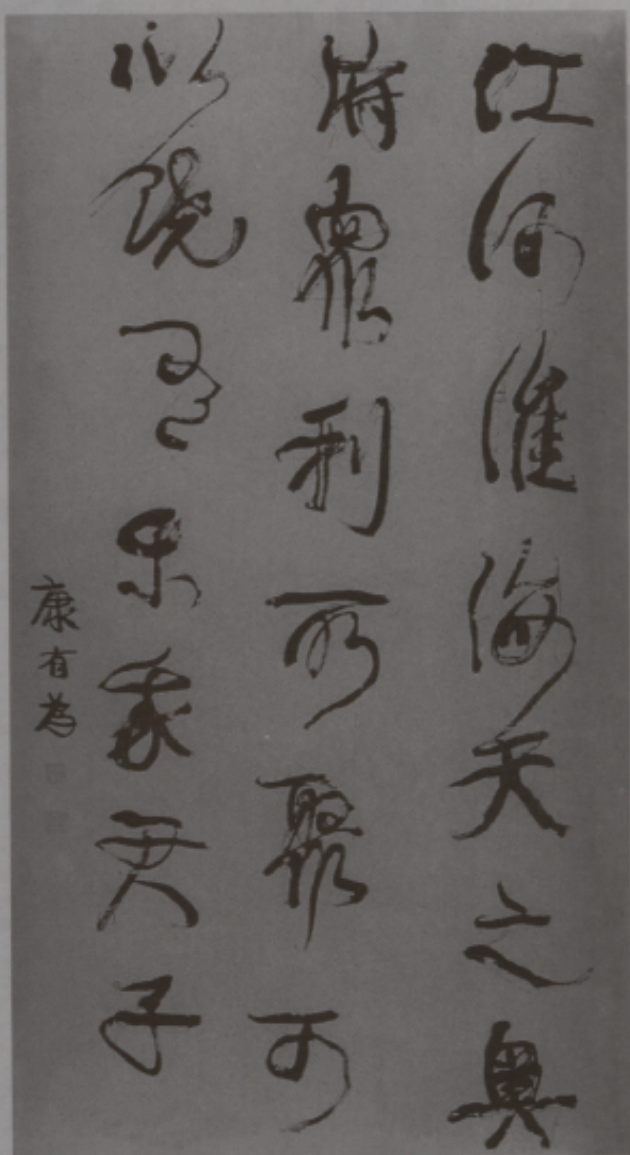 江河淮海天之奥
府众利所聚可
以饶有乐我君子
康有为